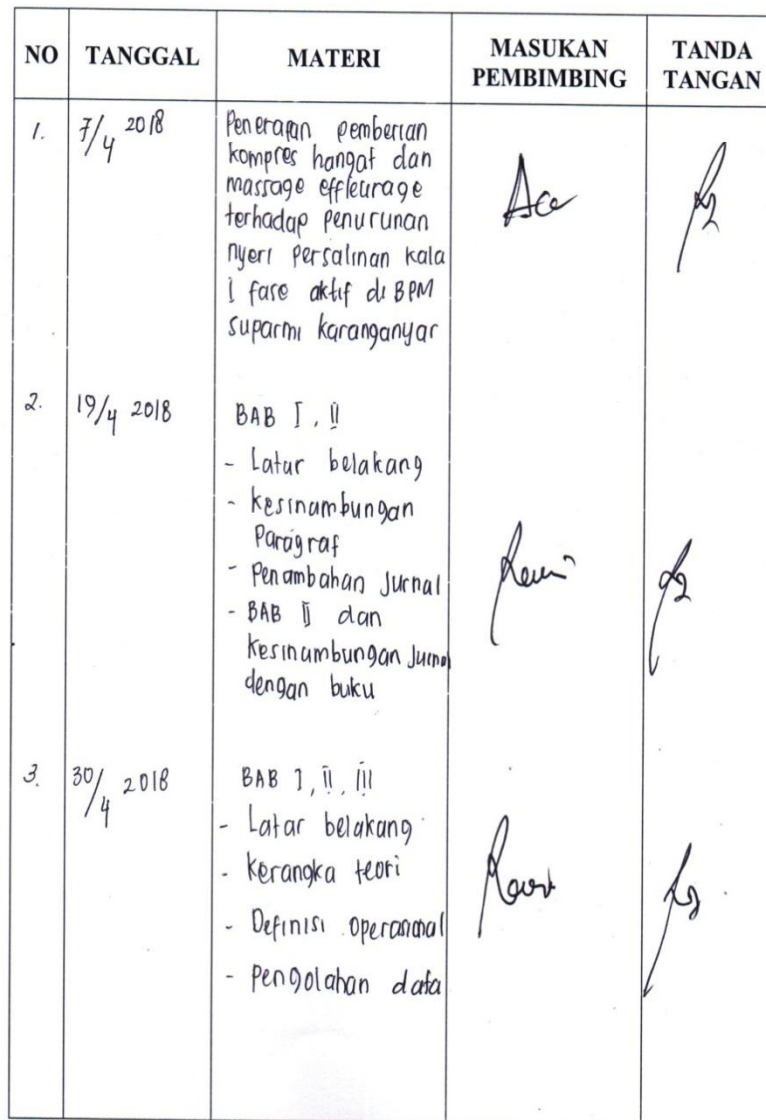 NO TANGGAL MATERI MASUKAN PEMBIMBING TANDA TANGAN
1. 7/4 2018 Penerapan pemberian Acc
kompres hangat dan
massage effleurage
terhadap penurunan
nyeri persalinan kala
I fase aktif di BPM
suparmi karanganyar
2. 19/4 2018 BAB I, II
- Latar belakang
- kesinambungan
Paragraf
- Penambahan Jurnal Revisi
- BAB II dan
kesinambungan Jurnal
dengan buku
3. 30/4 2018 BAB I, II, III
- Latar belakang
- kerangka teori Revisi
- Definisi operasional
- pengolahan data